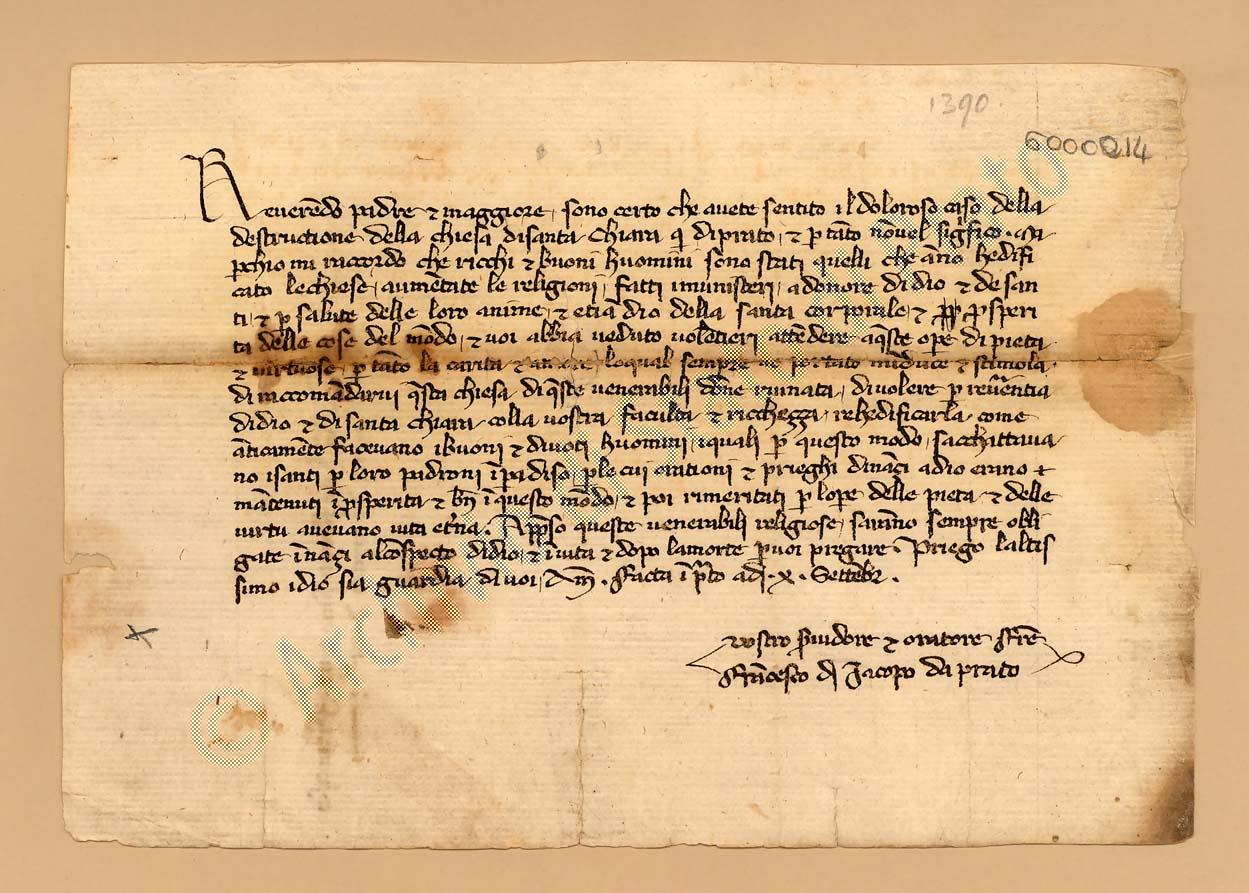 1390.
6000214
Reverēdo padre ⁊ maggiore, sono certo che avete sentito il doloroso caso della
destructione della chiesa disanta Chiara q̄ diprato, ⁊ ꝑ tāto nō vel sigfico. Ma
ꝑchio mi raccordo che ricchi ⁊ buoni huomini sono stati quelli che āno hedifi
cato le chiese, aumētate le religioni, fatti i munisteri, adonore di dio ⁊ de san
ti, ⁊ ꝑ salute delle loro anime, ⁊ etiā dio della santa corporale, ⁊ ꝓsperi
ta delle cose del mōdo, ⁊ voi abbia veduto volētieri attēdere aq̄ste oꝑe di pieta
⁊ virtuose, ꝑ tāto la carita ⁊ amore loqual sempre portato minduce ⁊ stimola
di raccomādarvi q̄sta chiesa di q̄ste venerabili dōne ruinata, di volere ꝑ revētia
didio ⁊ di santa chiara colla vostra faculta ⁊ ricchezza, rehedificarla come
āticamēte facevano i buoni ⁊ divoti huomini, iquali ꝑ questo modo, sacchattava
no isanti ꝑ loro padroni ī padiso, ꝑ le cui orationi ⁊ prieghi dināçi adio erano
mātenuti ī ꝓsperita ⁊ bn̄ ī questo mōdo, ⁊ poi rimeritati ꝑ lopere delle pieta ⁊ delle
virtu avevano vita et̄na. Apꝑso queste venerabili religiose, sarāno sempre obli
gate ināçi al cōspecto didio, ⁊ ī vita ⁊ dopo la morte ꝑ voi pregare. Priego laltis
simo idio sia guardia di voi, Am̄. Facta ī p̄to adi .x. Settēbr.
vostro ⁊ oratore Frē
Frācesco di Jacopo da prato